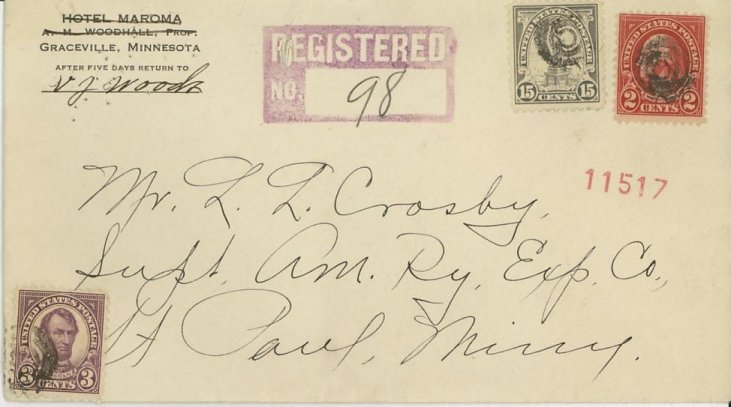 HOTEL MAROMA
A. M. WOODHALL, PROP.
GRACEVILLE, MINNESOTA
AFTER FIVE DAYS RETURN TO
V J Woods
REGISTERED
NO. 98
UNITED STATES POSTAGE
15 CENTS 15
UNITED STATES POSTAGE
2 CENTS 2
11517
Mr. L. L. Crosby,
Supt. Am. Ry. Exp. Co.,
St Paul, Minn.
UNITED STATES POSTAGE
LINCOLN
3 CENTS 3